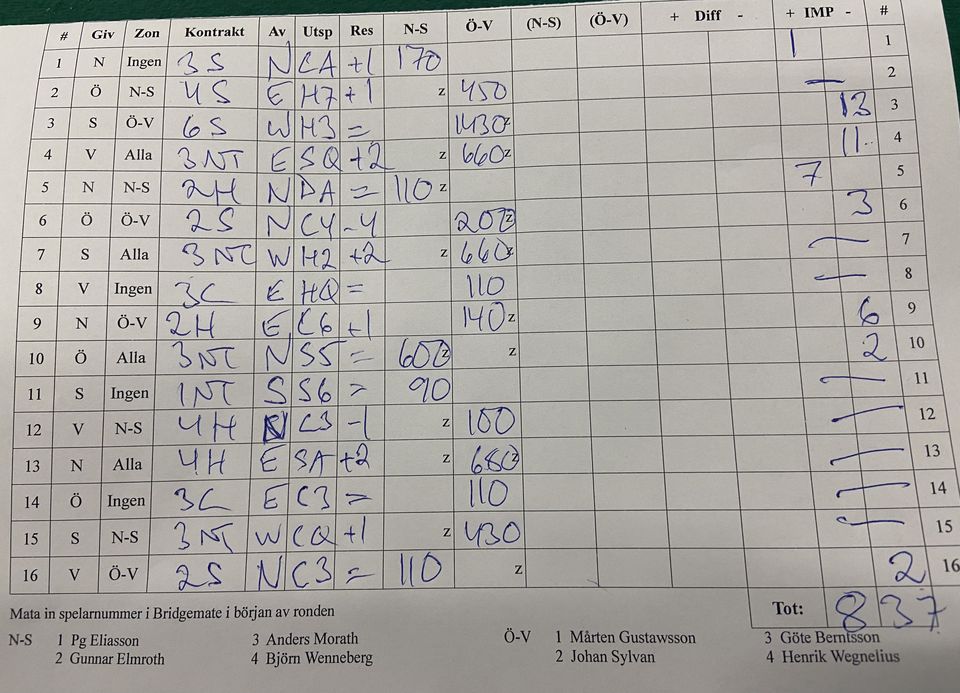 # Giv Zon Kontrakt Av Utsp Res N-S Ö-V (N-S) (Ö-V) + Diff - + IMP - #
1 N Ingen 3S N CA +1 170 1 1
2 Ö N-S 4S E H7 +1 z 450 — 2
3 S Ö-V 6S W H3 = 1430 z 13 3
4 V Alla 3NT E SQ +2 z 660 z 11 4
5 N N-S 2H N DA = 110 z 7 5
6 Ö Ö-V 2S N C4 -4 200 z 3 6
7 S Alla 3NT W H2 +2 z 660 z — 7
8 V Ingen 3C E HQ = 110 — 8
9 N Ö-V 2H E C6 +1 140 z 6 9
10 Ö Alla 3NT N S5 = 600 z z 2 10
11 S Ingen 1NT S S6 = 90 — 11
12 V N-S 4H N C3 -1 z 100 — 12
13 N Alla 4H E SA +2 z 680 z — 13
14 Ö Ingen 3C E C3 = 110 — 14
15 S N-S 3NT W CQ +1 z 430 — 15
16 V Ö-V 2S N C3 = 110 z 2 16
Mata in spelarnummer i Bridgemate i början av ronden Tot: 8 37
N-S 1 Pg Eliasson 3 Anders Morath Ö-V 1 Mårten Gustawsson 3 Göte Berntsson
2 Gunnar Elmroth 4 Björn Wenneberg 2 Johan Sylvan 4 Henrik Wegnelius